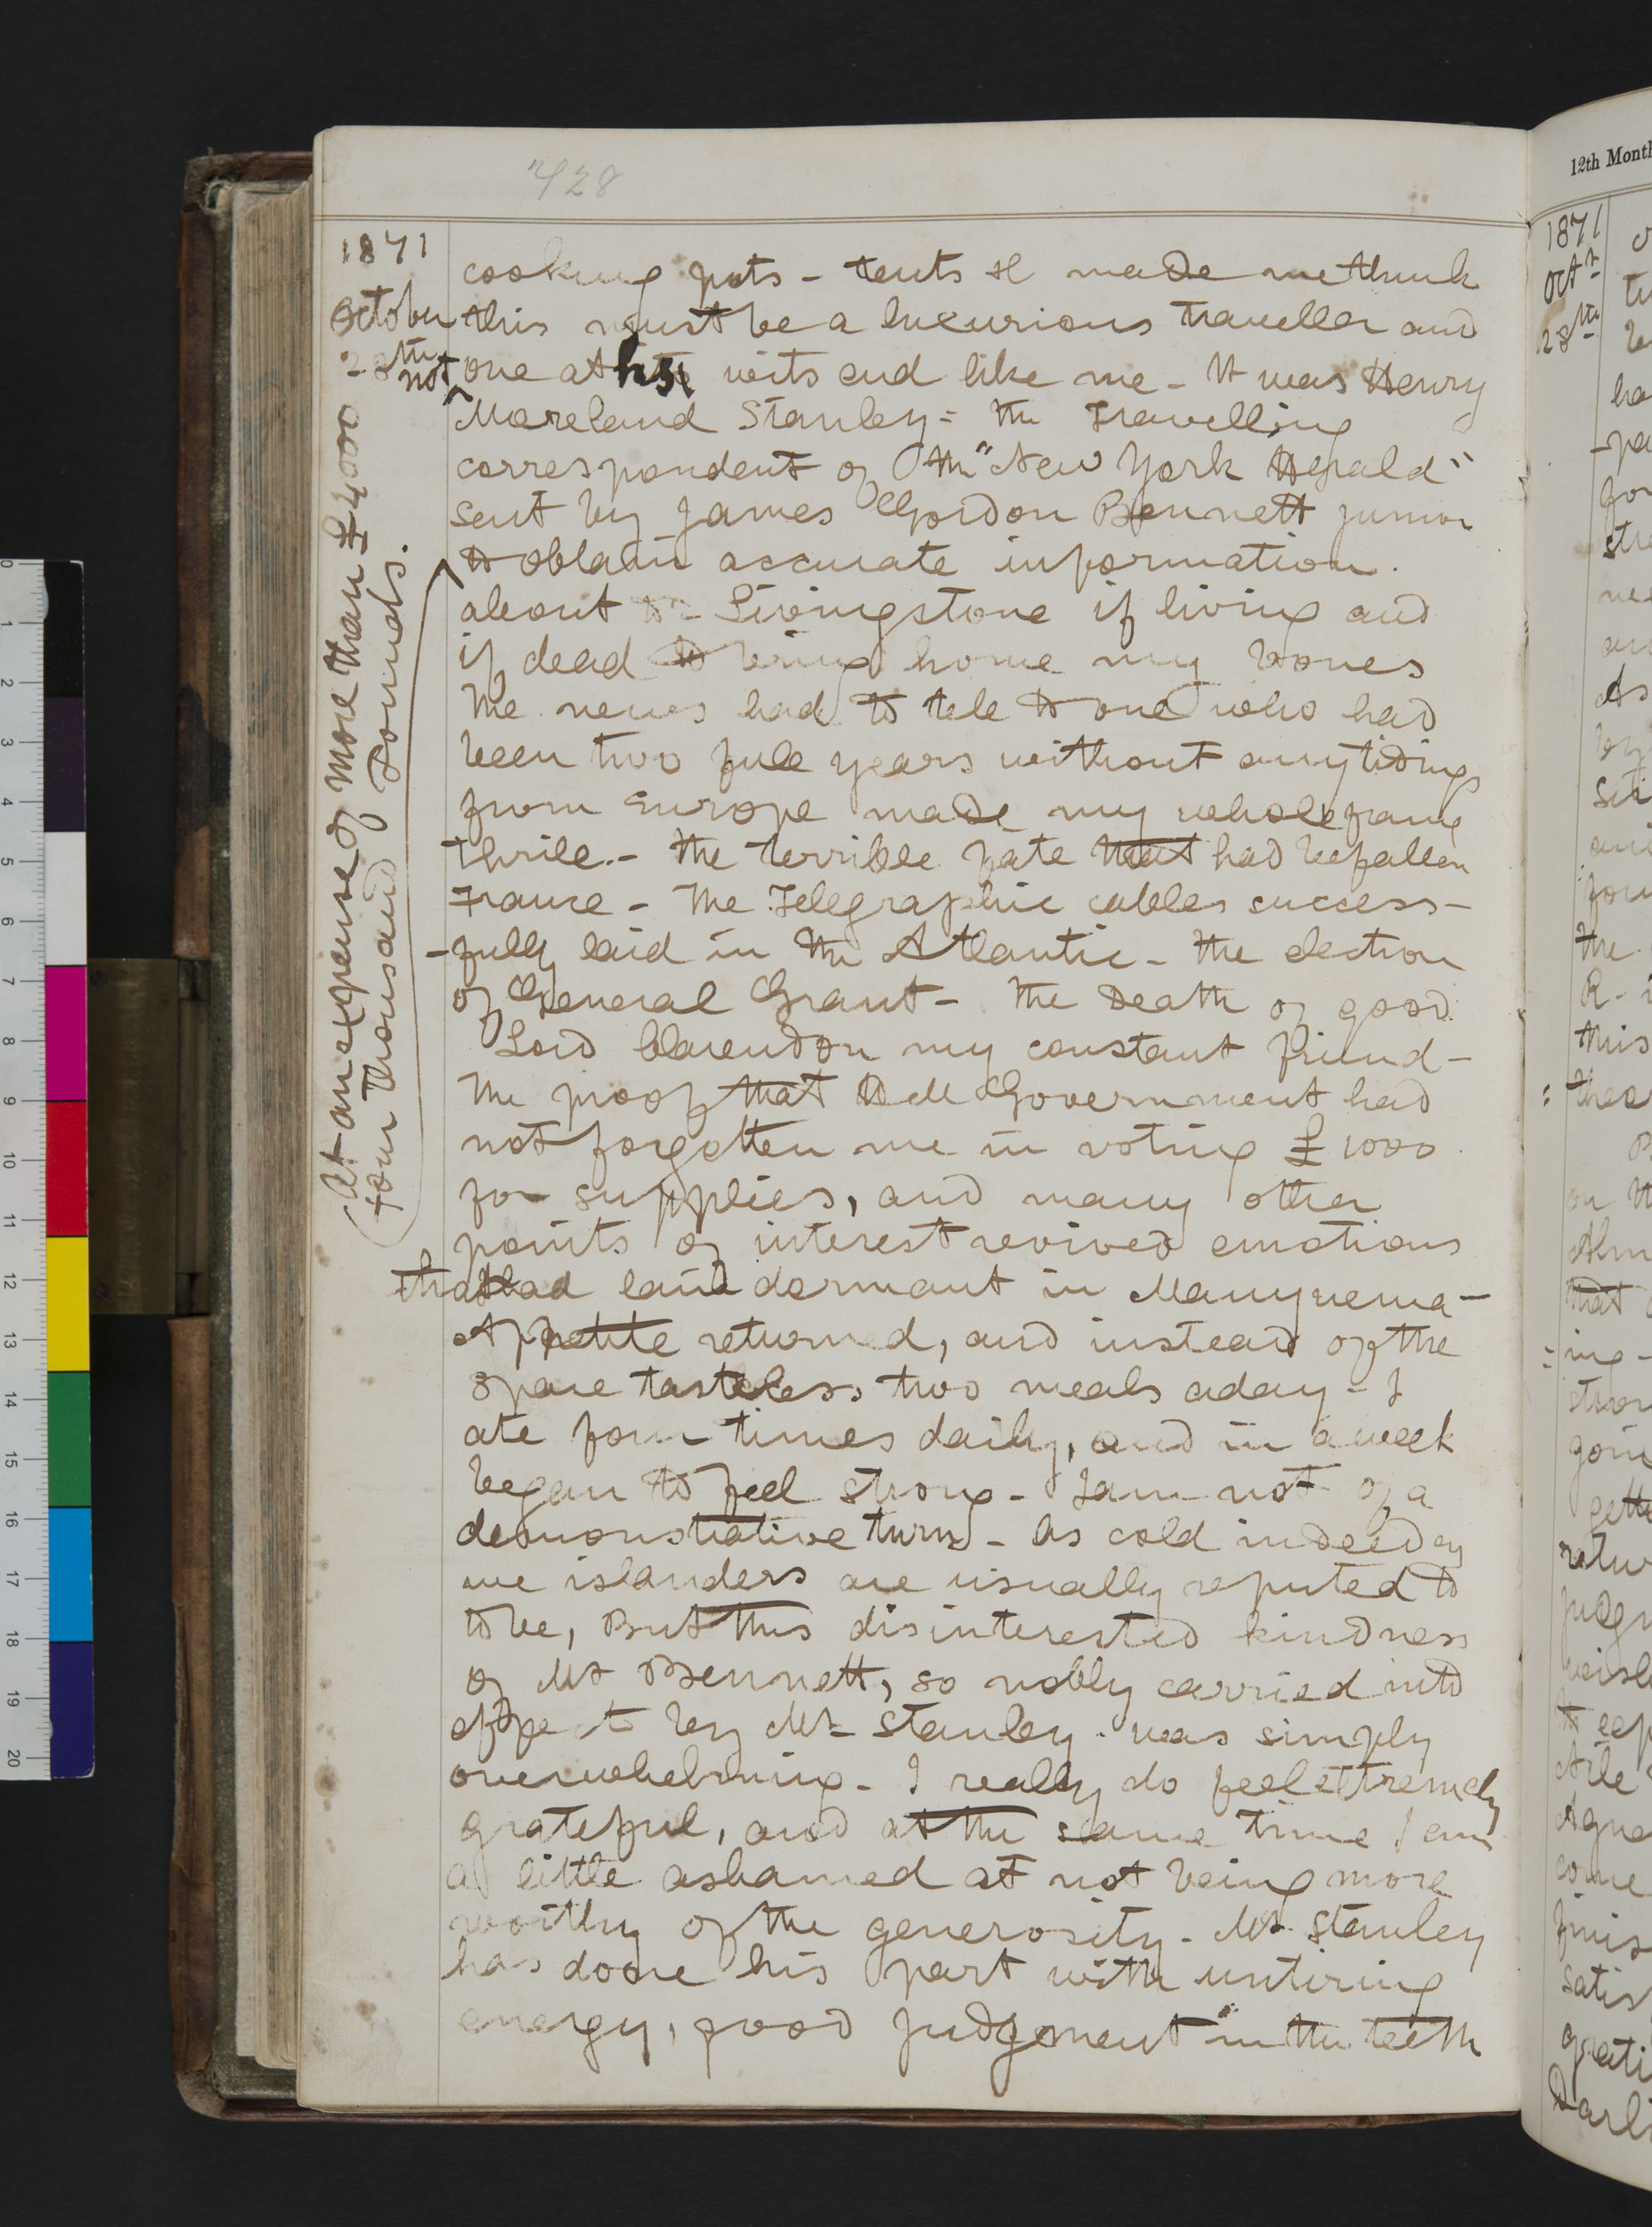 728
1871
October
28th
cooking pots - tents &c made me think
this must be a luxurious traveller and
not one at his wits end like me - It was Henry
Moreland Stanley = the Travelling
correspondent of the "New York Herald"
sent by James Gordon Bennett junior
to obtain accurate information
about Dr Livingstone if living and
if dead to bring home my bones
The news had to tell to one who had
been two full years without any tidings
from Europe made my whole frame
thrill. - The terrible fate that had befallen
France - The Telegraphic cables success-
-fully laid in the Atlantic - the election
of General Grant - The Death of good
Lord Clarendon my constant friend -
The proof that HM Government had
not forgotten me in voting £1000
for supplies, and many other
points of interest revived emotions
that had laid dormant in Manyuema -
Appetite returned, and instead of the
spare tasteless two meals a day - I
ate four times daily, and in a week
began to feel strong - I am not of a
demonstrative turn - as cold indeed as
we islanders are usually reputed to
to be, But this disinterested kindness
of Mr Bennett, so nobly carried into
effect by Mr Stanley was simply
overwhelming - I really do feel extremely
grateful, and at the same time I am
a little ashamed at not being more
worthy of the generosity - Mr Stanley
has done his part with untiring
energy, good judgement in the teeth
(At an expense of more than £4000
four thousand Pounds.
12th Month
1871
Octr
28th